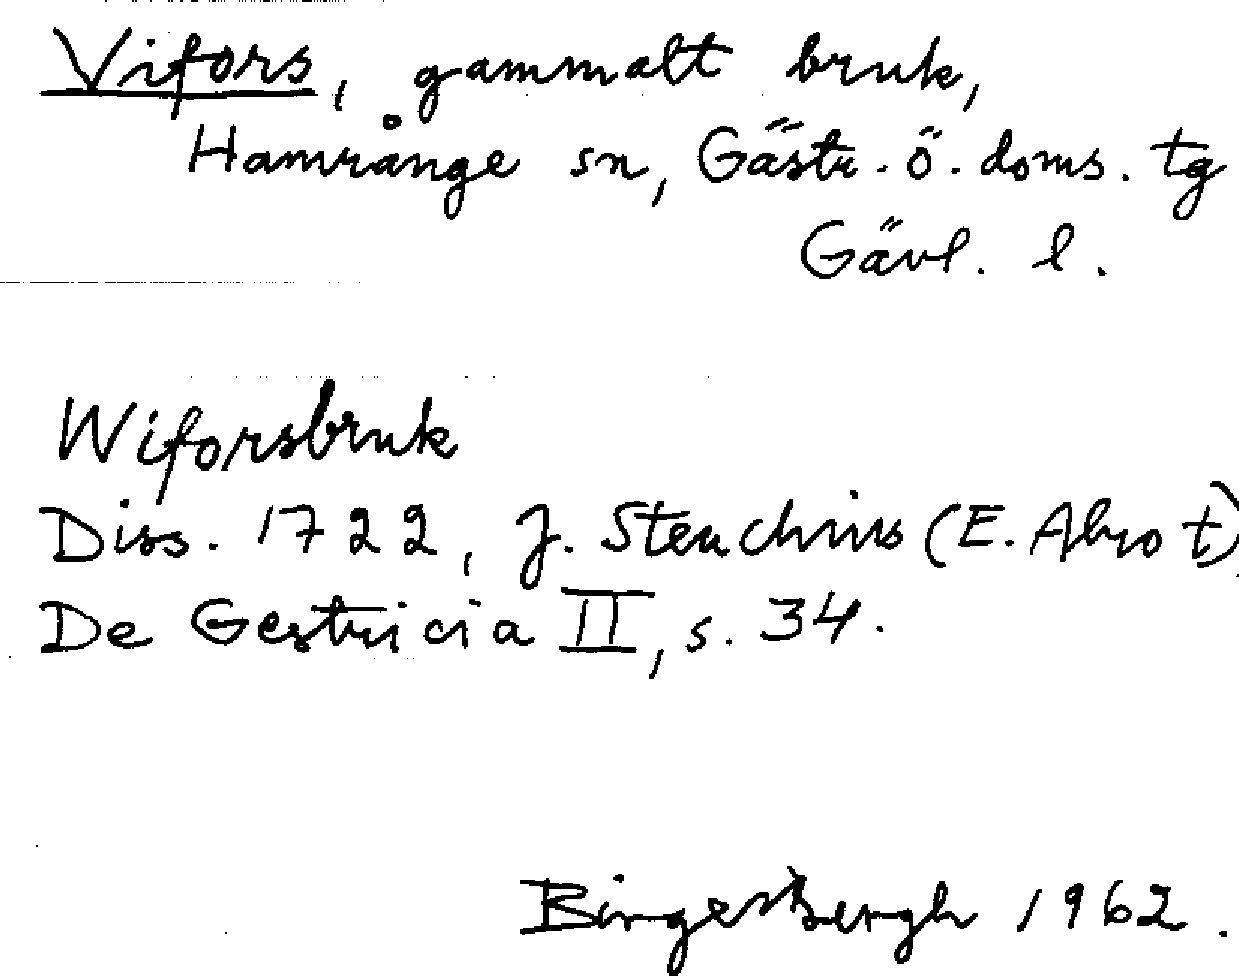 Vifors, gammalt bruk,
Hamrånge sn, Gästr. ö. doms. tg
Gävl. l.
Wiforsbruk
Diss. 1722, J. Steuchius (E. Abrot)
De Gestricia II, s. 34.
Birger Bergh 1962.